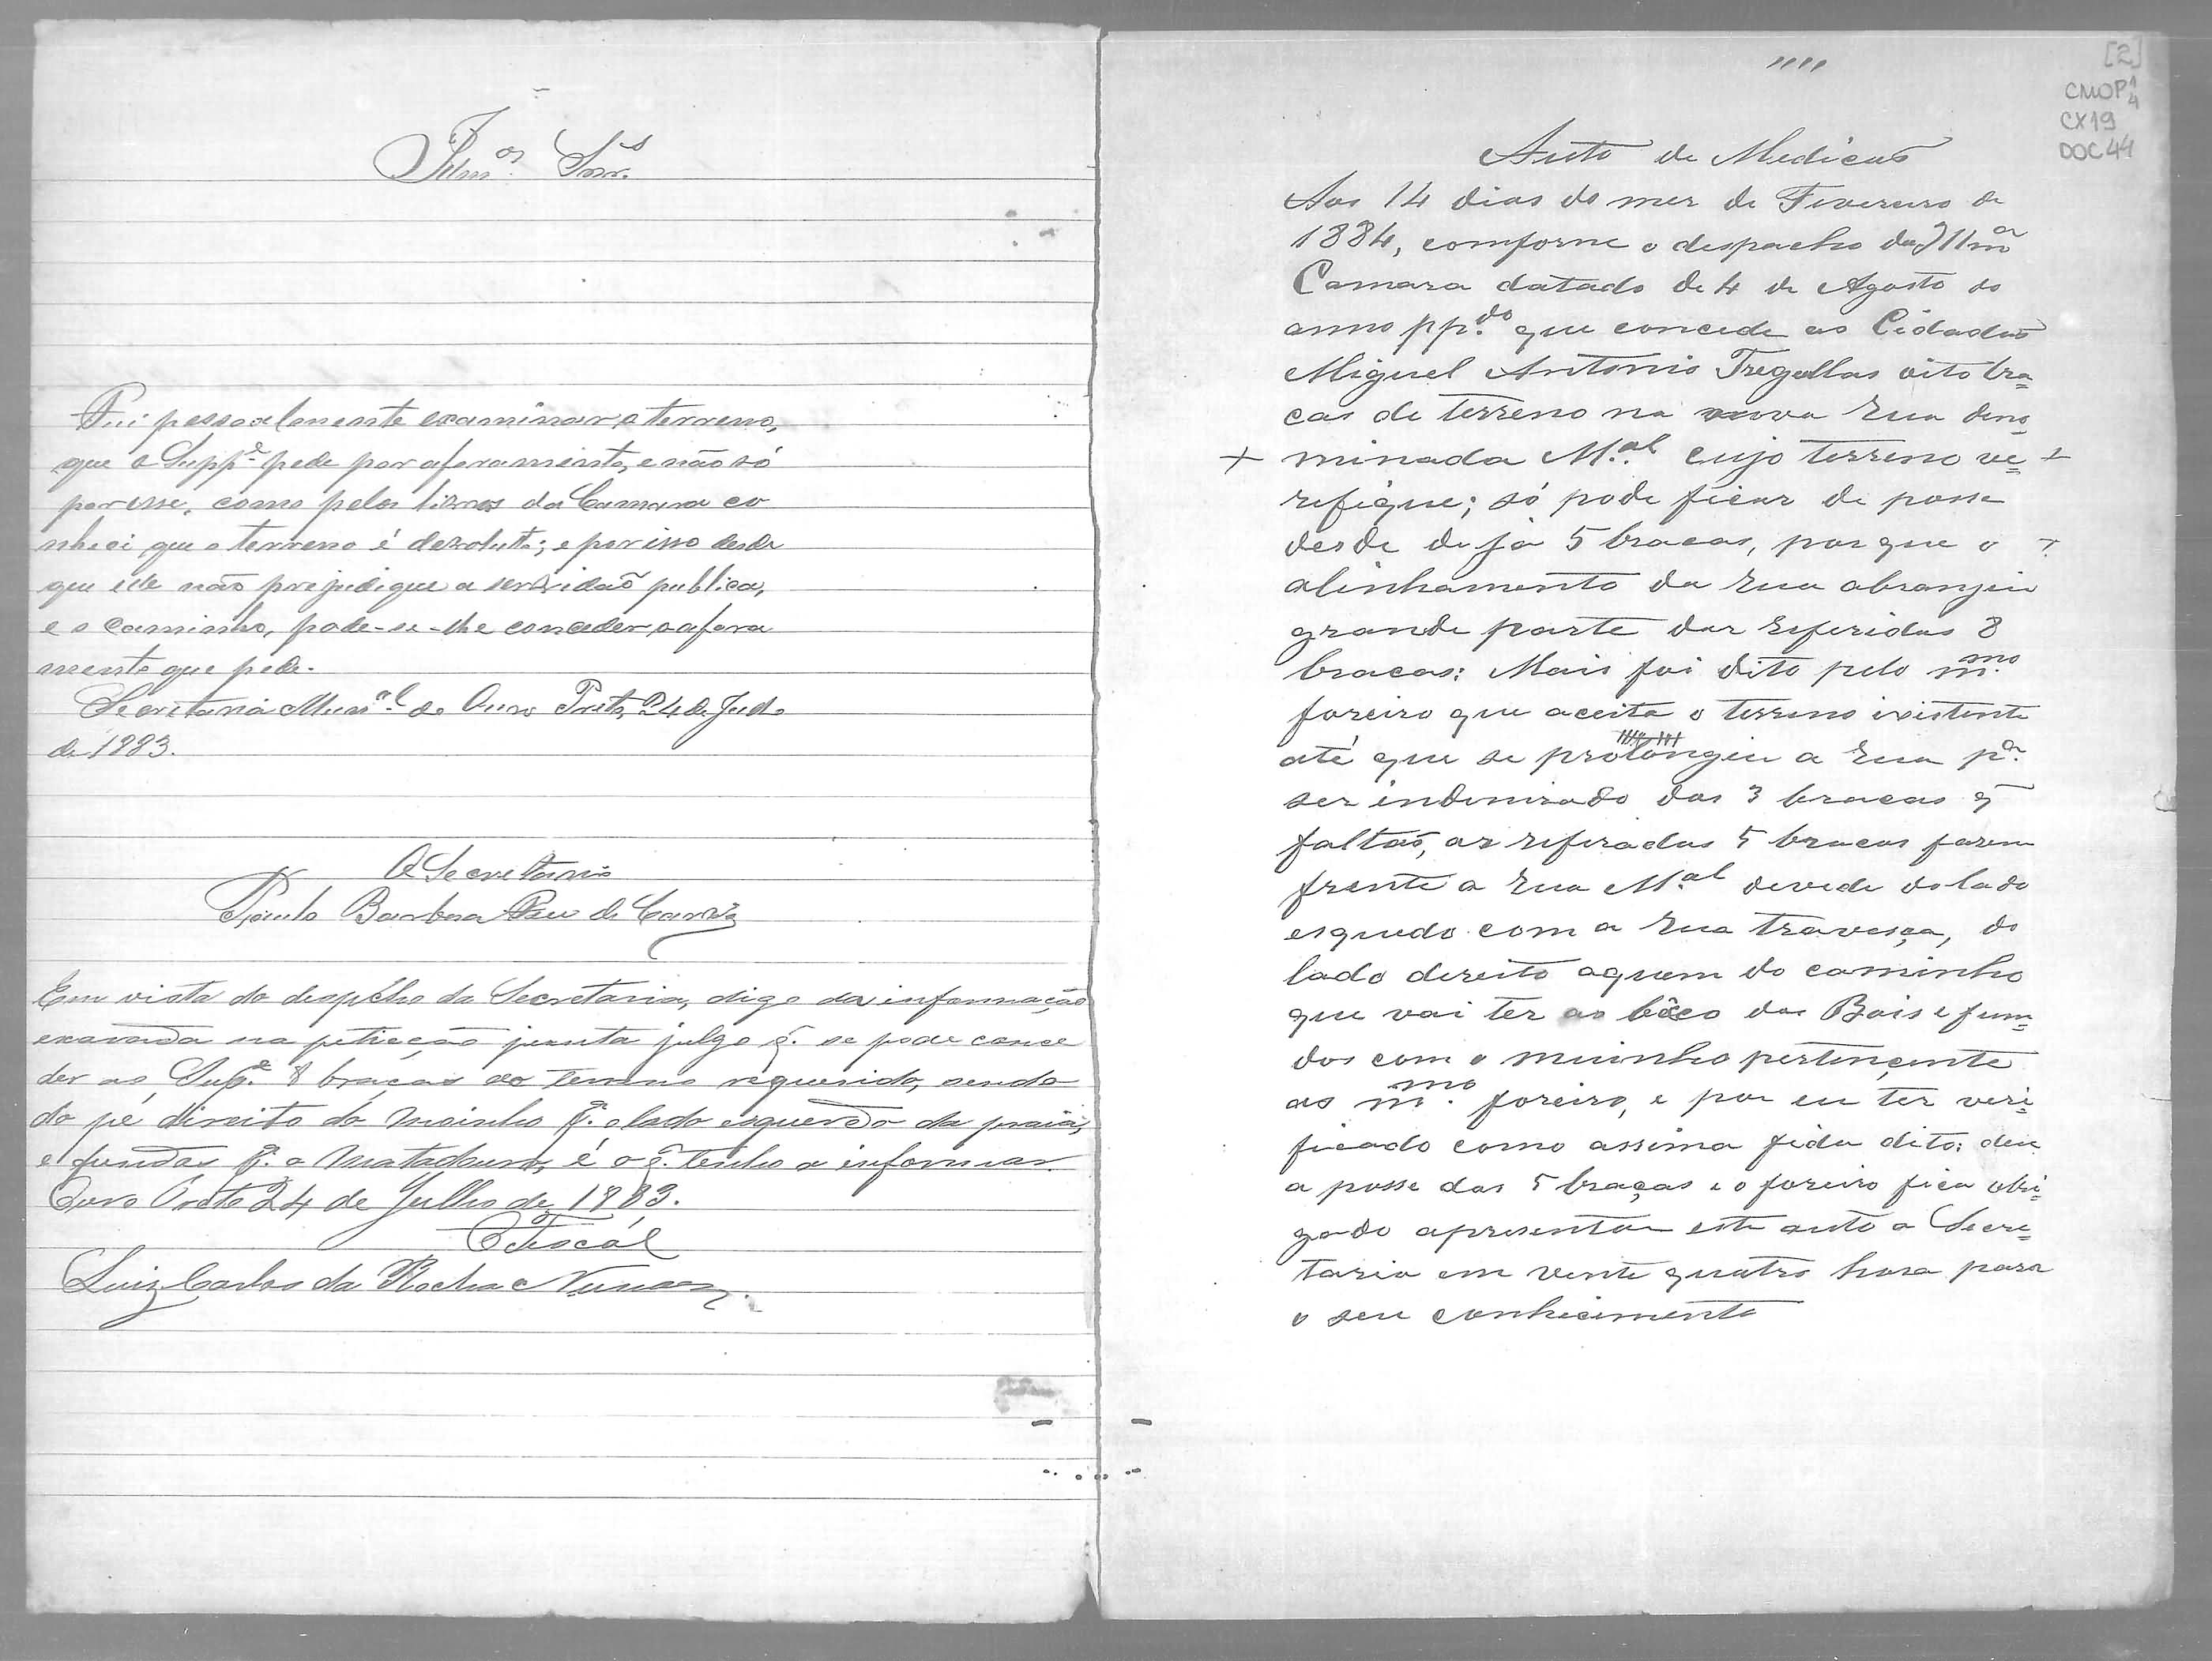 Illmos. Snrs.
Fui pessoalmente examinar o terreno,
que o Suppe. pede por aforamento, e não só
por esse, como pelos livros da Camara co
nheci que o terreno é devoluto; e por isso desde
que elle não prejudique a servidão publica,
e o caminho, pode-se-lhe conceder o afora
mento que pede.
Secretaria Munal. de Ouro Preto, 24 de Julo
de 1883.
O Secretario
Paulo Barbosa
Em vista do despacho da Secretaria, digo da informação
exarada na petição junta julgo q. se pode conce
der ao Supe. 8 braças do terreno requerido, sendo
do pé direito do Moinho pa. o lado esquerdo da praia,
e fundos pa. o Matadouro, é o q. tenho a informar.
Ouro Preto 24 de Julho de 1883.
O Fiscál
Luiz Carlos da Rocha Nunan.
[2]
CMOP 1/4
CX19
DOC 44
Auto de Medicaõ
Aos 14 dias do mez de Fevereiro de
1884, comforme o despacho da Illma
Camara datado de 4 de Agosto do
anno pp.do que concede ao Cidadaõ
Miguel Antonio Tregellas oito bra=
cas de terreno na nova rua deno=
+ minada M.al cujo terreno ve= +
refique; só pode ficar de posse
desde de já 5 bracas, por que o +
alinhamento da rua abrangeu
grande parte das referidas 8
bracas: Mais foi dito pelo m.mo
foreiro que aceita o terreno existente
até que se prolongue a rua p.a
ser indenizado das 3 bracas q̃
faltaõ, as referadas 5 bracas fazem
frente a rua M.al devede do lado
esquedo com a rua travessa, do
lado direito aquem do caminho
que vai ter ao bêco dos Bois e fun=
dos com o muinho pertencente
ao m.mo foreiro, e por eu ter veri=
ficado como assima fica dito: dei
a posse das 5 braças e o foreiro fica obri=
gado apresentar este auto a Secre=
taria em vente quatro hora para
o seu conhecimento